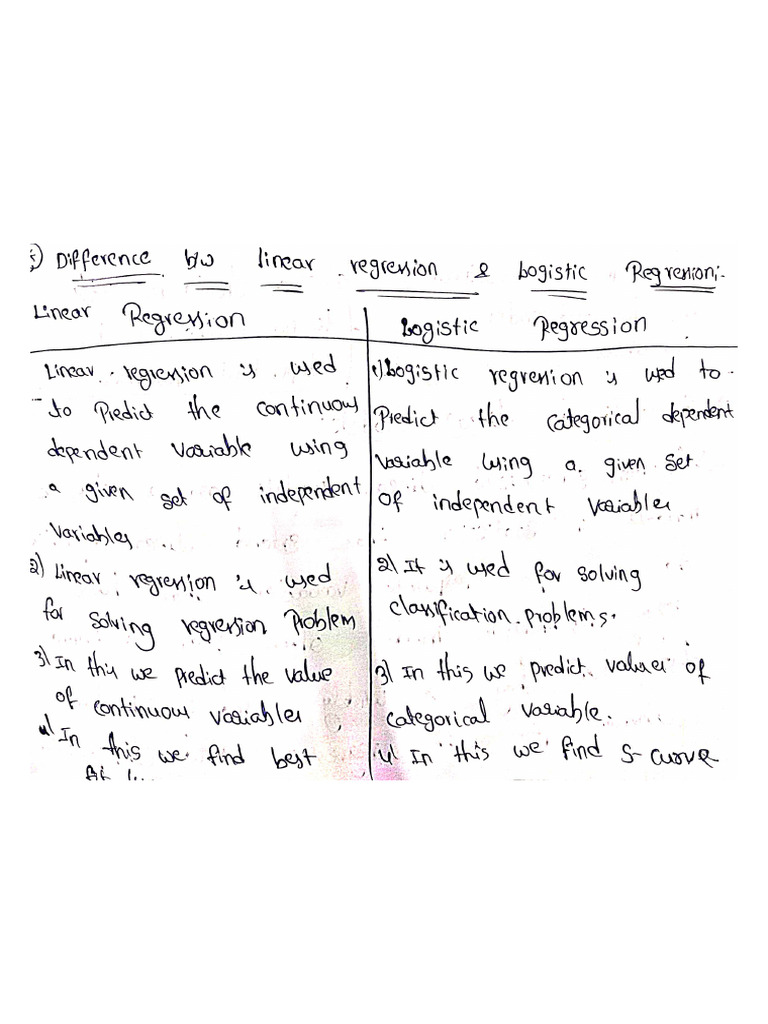 5) Difference b/w linear regression & Logistic Regression:-
Linear Regression
Linear regression is used
to Predict the continuous
dependent variable using
a given set of independent
variables
2) Linear regression is used
for solving regression Problem
3) In this we predict the value
of continuous variables
4) In this we find best
fit
Logistic Regression
1) Logistic regression is used to
Predict the categorical dependent
variable using a given set
of independent variables
2) It is used for solving
classification problems.
3) In this we predict values of
categorical variable.
4) In this we find S-curve